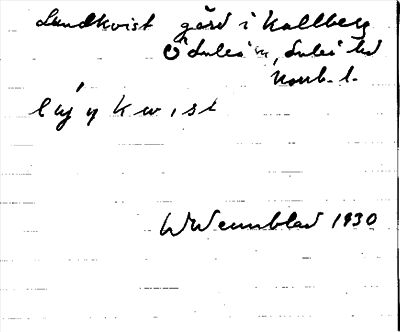 Lundkvist gård i Kallberg
Ö Luleå sn, Luleå td
Norrb. l.
kw, st
W Wennblad 1930